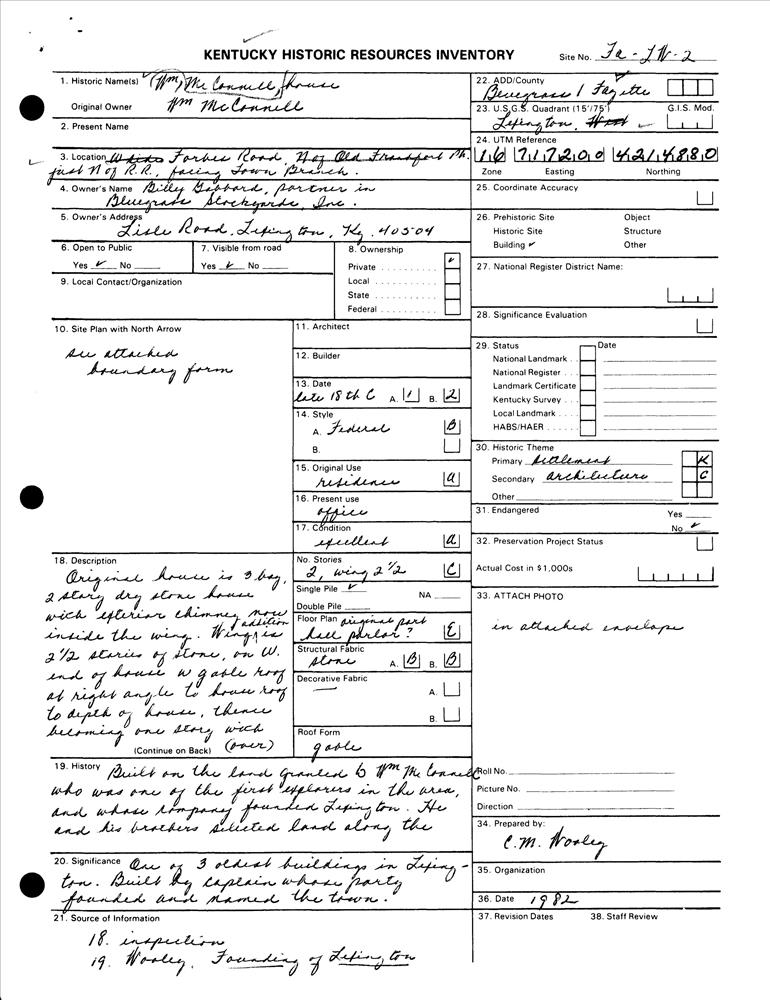 KENTUCKY HISTORIC RESOURCES INVENTORY
Site No. Fa-LW-2
1. Historic Name(s) (Wm, McConnell, house
Original Owner Wm McConnell
2. Present Name
3. Location Forbes Road, N of Old Frankfort Pk.
just N of R.R., facing Town Branch.
4. Owner's Name Billy Gibbard, partner in
Bluegrass Stockyards, Inc.
5. Owner's Address
Lisle Road, Lexington, Ky. 40504
6. Open to Public
Yes ✓ No
7. Visible from road
Yes ✓ No
8. Ownership
Private . . . . . . . . . . ✓
Local . . . . . . . . . . . .
State . . . . . . . . . . . .
Federal . . . . . . . . . .
9. Local Contact/Organization
10. Site Plan with North Arrow
see attached
boundary form
11. Architect
12. Builder
13. Date
late 18th C A. 1 B. 2
14. Style
A. Federal B
B.
15. Original Use
residence a
16. Present use
office
17. Condition
excellent a
18. Description
Original house is 3 bay,
2 story dry stone house
with exterior chimney now
inside the wing. Wing addition is
2 1/2 stories of stone, on W.
end of house w gable roof
at right angle to house roof
to depth of house, thence
becoming one story with
(Continue on Back) (over)
No. Stories
2, wing 2 1/2 C
Single Pile ✓ NA
Double Pile
Floor Plan original part
hall parlor? E
Structural Fabric
stone A. B B. B
Decorative Fabric
— A.
B.
Roof Form
gable
19. History Built on the land granted to Wm McConnell
who was one of the first explorers in the area,
and whose company founded Lexington. He
and his brothers selected land along the
20. Significance One of 3 oldest buildings in Lexing-
ton. Built by captain whose party
founded and named the town.
21. Source of Information
18. inspection
19. Wooley, Founding of Lexington
22. ADD/County
Bluegrass / Fayette
23. U.S.G.S. Quadrant (15'/75') G.I.S. Mod.
Lexington, West ✓
24. UTM Reference
16 717200 4214880
Zone Easting Northing
25. Coordinate Accuracy
26. Prehistoric Site Object
Historic Site Structure
Building ✓ Other
27. National Register District Name:
28. Significance Evaluation
29. Status Date
National Landmark . .
National Register . . .
Landmark Certificate
Kentucky Survey . . .
Local Landmark . . . .
HABS/HAER . . . . . .
30. Historic Theme
Primary settlement K
Secondary architecture C
Other
31. Endangered Yes
No ✓
32. Preservation Project Status
Actual Cost in $1,000s
33. ATTACH PHOTO
in attached envelope
Roll No.
Picture No.
Direction
34. Prepared by:
C.M. Wooley
35. Organization
36. Date 1982
37. Revision Dates 38. Staff Review